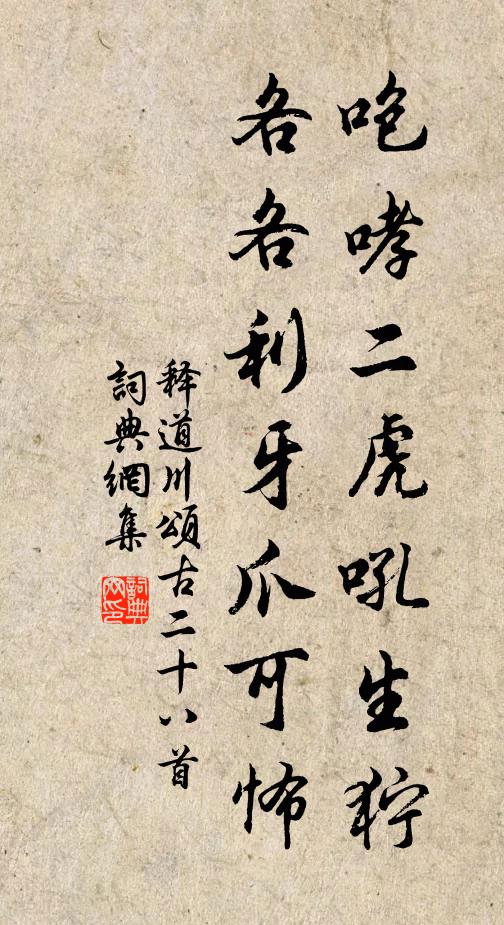 咆哮二虎吼生狞
各各利牙爪可怖
释道川頌古二十八首
詞典網集
詞典网印